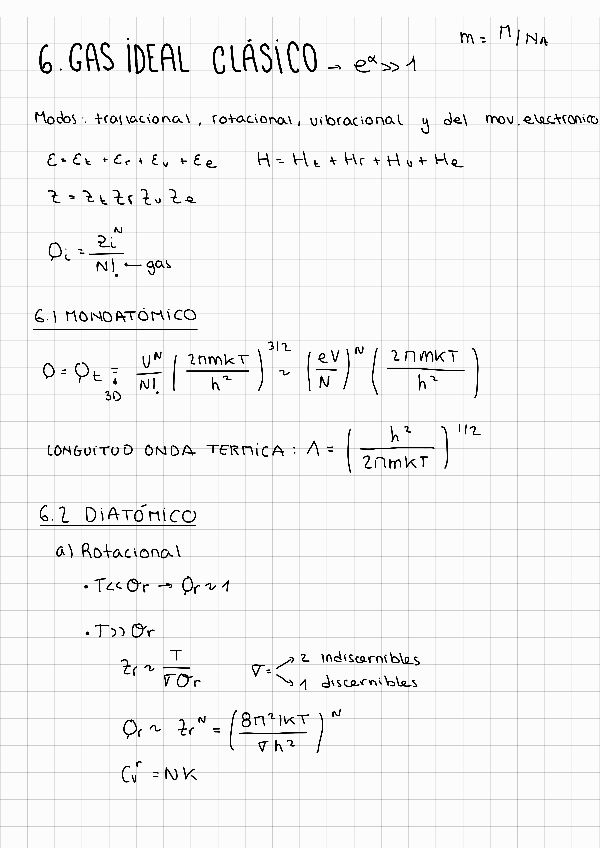 m = M/NA
6. GAS IDEAL CLÁSICO → e^α >> 1
Modos: traslacional, rotacional, vibracional y del mov. electronico
ε = εt + εr + εv + εe    H = Ht + Hr + Hv + He
Z = Zt Zr Zv Ze
Qi = Zi^N / N! ← gas
6.1 MONOATÓMICO
Q = Qt = (3D) V^N/N! (2πmkT/h²)^3/2 ~ (eV/N)^N (2πmkT/h²)
LONGUITUD ONDA TERMICA: Λ = (h²/2πmkT)^1/2
6.2 DIATÓMICO
a) Rotacional
· T<<Θr → Qr ~ 1
· T>>Θr
Zr ~ T/σΘr    σ = 2 indiscernibles
1 discernibles
Qr ~ Zr^N = (8π²IKT/σh²)^N
Cv^r = NK